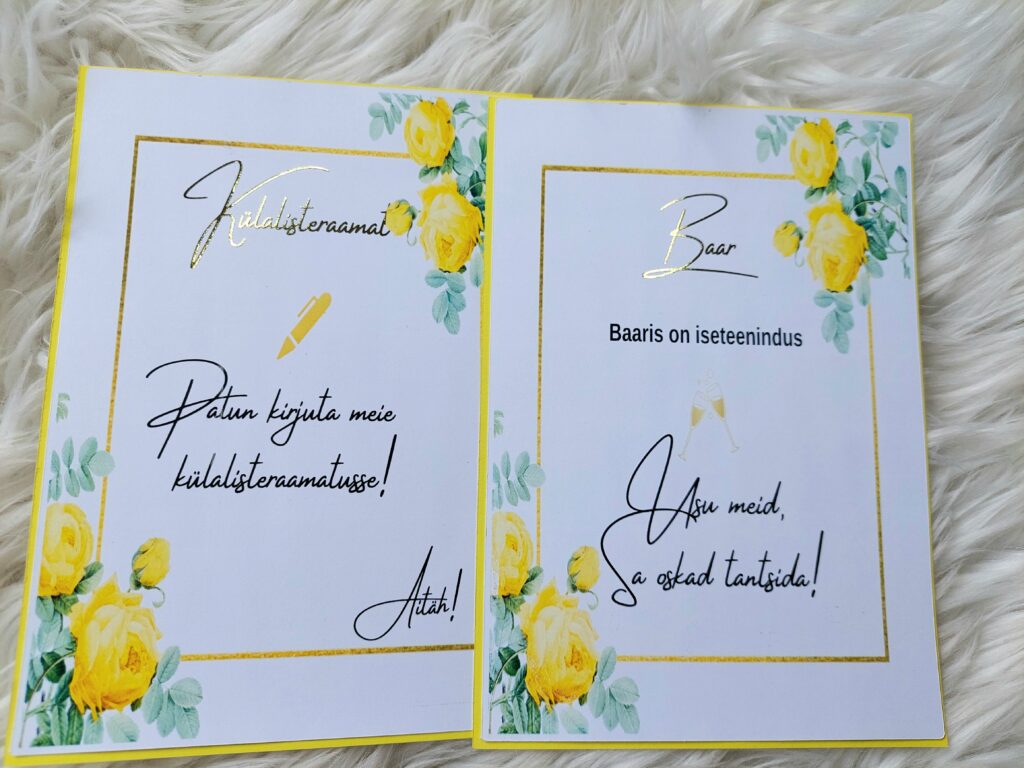 Külalisteraamat
Patun kirjuta meie
külalisteraamatusse!
Aitäh!
Baar
Baaris on iseteenindus
Usu meid,
Sa oskad tantsida!